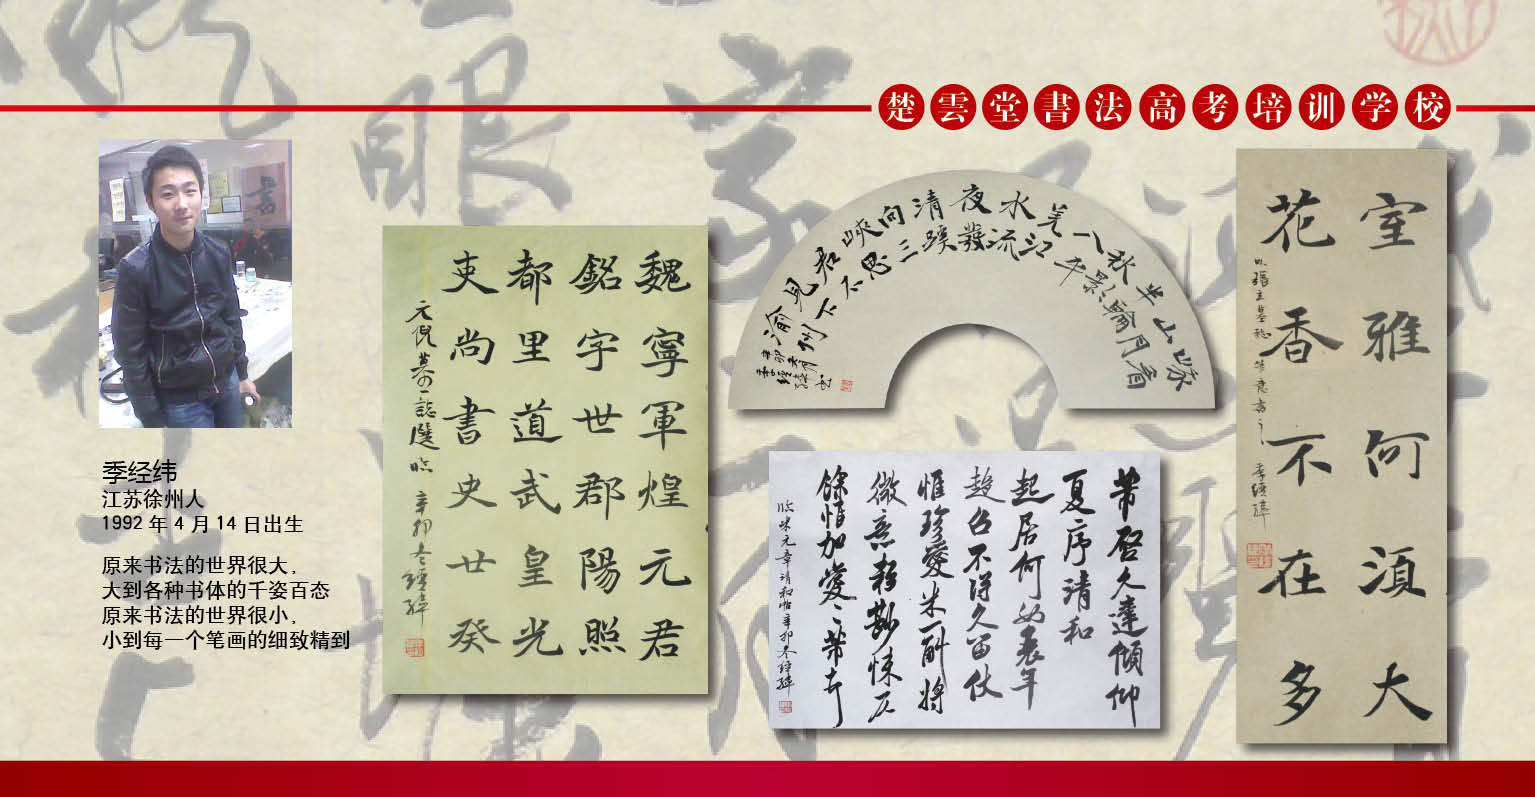 楚雲堂書法高考培训学校
季经纬
江苏徐州人
1992年4月14日出生
原来书法的世界很大，
大到各种书体的千姿百态
原来书法的世界很小，
小到每一个笔画的细致精到
魏寧軍煌元君
銘字世郡陽照
都里道武皇光
吏尚書史廿癸
元倪墓誌選臨 辛卯冬經緯
峨眉山月半輪秋影入平羌江水流夜發清蹊向三峽思君不見下渝州
季經緯書
芾啓久違傾仰
夏序清和
起居何如衰年
趍召不得久留伏
惟珍愛米一斛將
微意輕尠悚仄
餘惟加愛、芾卞
臨米元章清和帖辛卯冬經緯
室雅何須大
花香不在多
以張玄墓誌筆意書之 季經緯